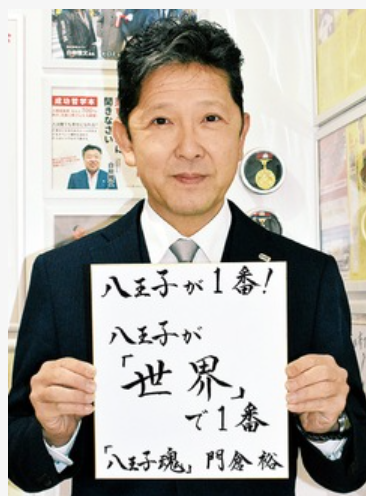 成功哲学本
聞きなさい
八王子が1番!
八王子が
「世界」
で1番
「八王子魂」門倉裕